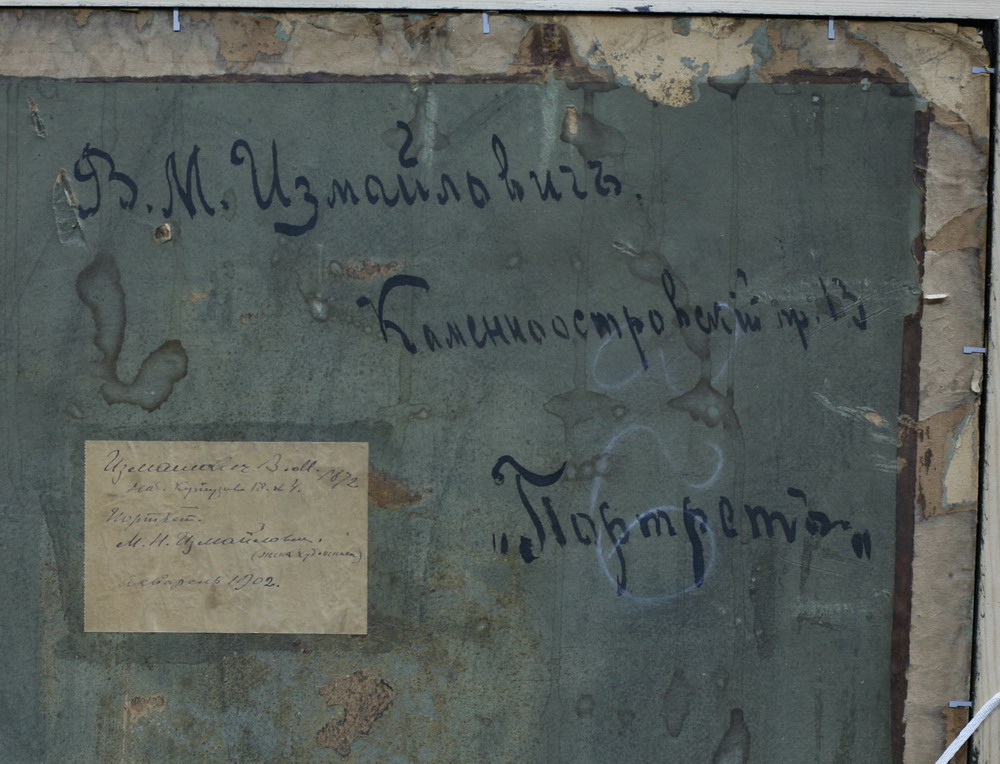 В. М. Измайловичъ.
Каменноостровскій пр. 13
„Портретъ„
Измаилович В. М. 1872
наб. Кутузова 18. к 4.
Портрет.
М. Н. Измайлович.
(жена художника)
акварель 1902.